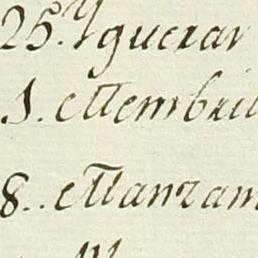 25. Yguerar
1. Membril
8.. Manzan